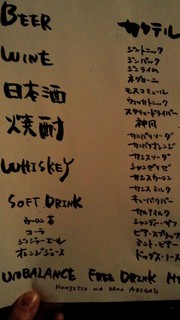 BEER
WINE
日本酒
焼酎
WHISKEY
SOFT DRINK
ウーロン茶
コーラ
ジンジャーエール
オレンジジュース
カクテル
ジントニック
ジンバック
ジンライム
ネグローニ
モスコミュール
ウォッカトニック
スクリュードライバー
神風
カンパリソーダ
カンパリオレンジ
カシスソーダ
カシスウーロン
カシスミルク
キューバリバー
カルアミルク
ジンジャーガフ
ミント・ビアー
ドッグズ・ノーズ
UNBALANCE FREE DRINK